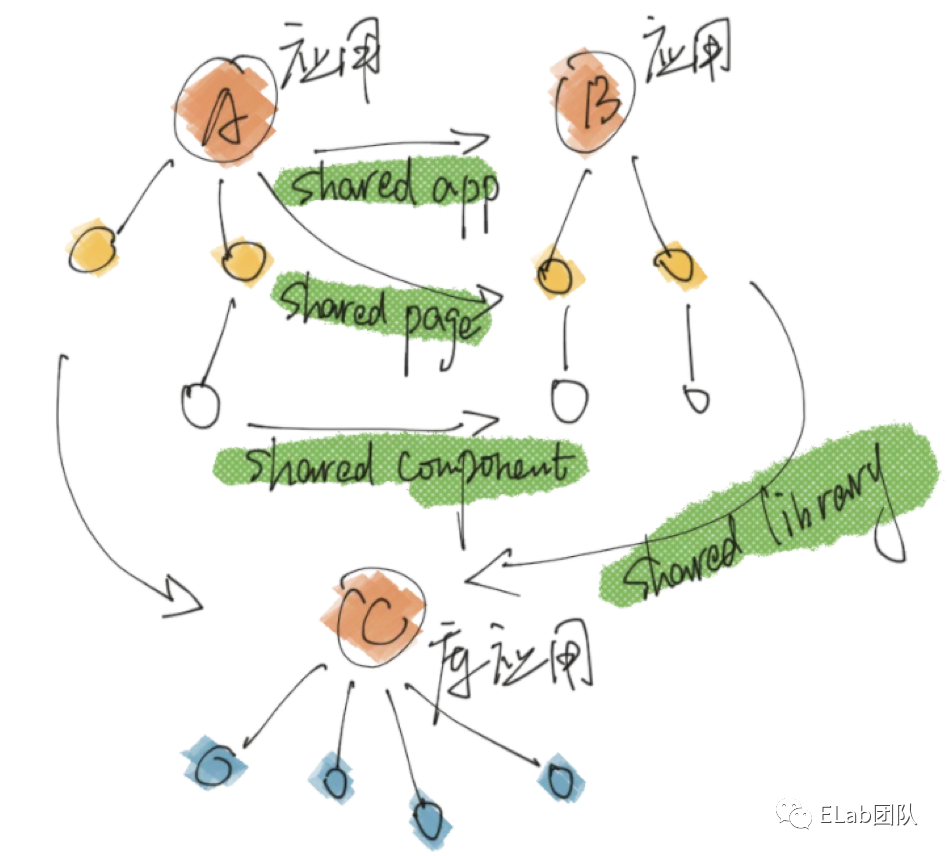 应用
A
应用
B
shared app
shared page
shared component
shared library
C
应用
ELab团队